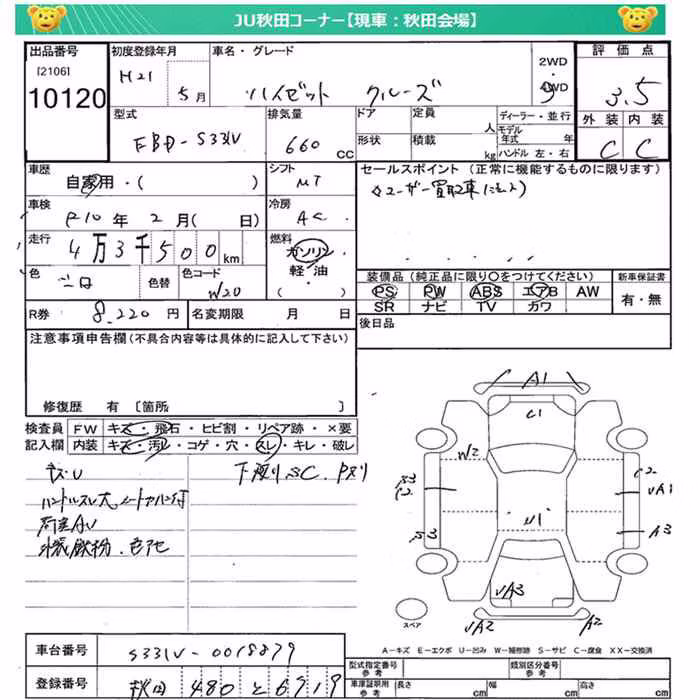 JU秋田コーナー【現車：秋田会場】
出品番号
[2106]
10120
初度登録年月
H21 5月
車名・グレード
ハイゼット クルーズ
2WD
4WD
評価点
3.5
外装 内装
C C
型式
EBD-S331V
排気量
660 cc
ドア
定員 人
形状
積載 kg
ディーラー・並行
モデル年式 年
ハンドル 左・右
車歴
自家用・( )
シフト
MT
セールスポイント (正常に機能するものに限ります)
車検
R10年 2月( 日)
冷房
AC
走行
4万3千500km
燃料
ガソリン
軽・油
( )
色
シロ
色替
色コード
W20
装備品 (純正品に限り○をつけてください)
PS PW ABS エアB AW
SR ナビ TV カワ
新車保証書
有・無
R券 8,220円
名変期限 月 日
後日品
注意事項申告欄(不具合内容等は具体的に記入して下さい)
修復歴 有 〔箇所 〕
検査員記入欄
FW キズ・飛石・ヒビ割・リペア跡・×要
内装 キズ・汚レ・コゲ・穴・スレ・キレ・破レ
キズ・U
下廻りSC、Pヌリ
外装鉄粉、色アセ
A1
C1
W2
C2
UA1
A3
U1
UA3
UA2
A2
スペア
A－キズ E－エクボ U－凹み W－補修跡 S－サビ C－腐食 XX－交換済
車台番号
S331V-0018879
登録番号
秋田 480 と 6919
型式指定番号 参考
類別区分番号 参考
車庫証明用 参考
長さ cm
幅 cm
高さ cm